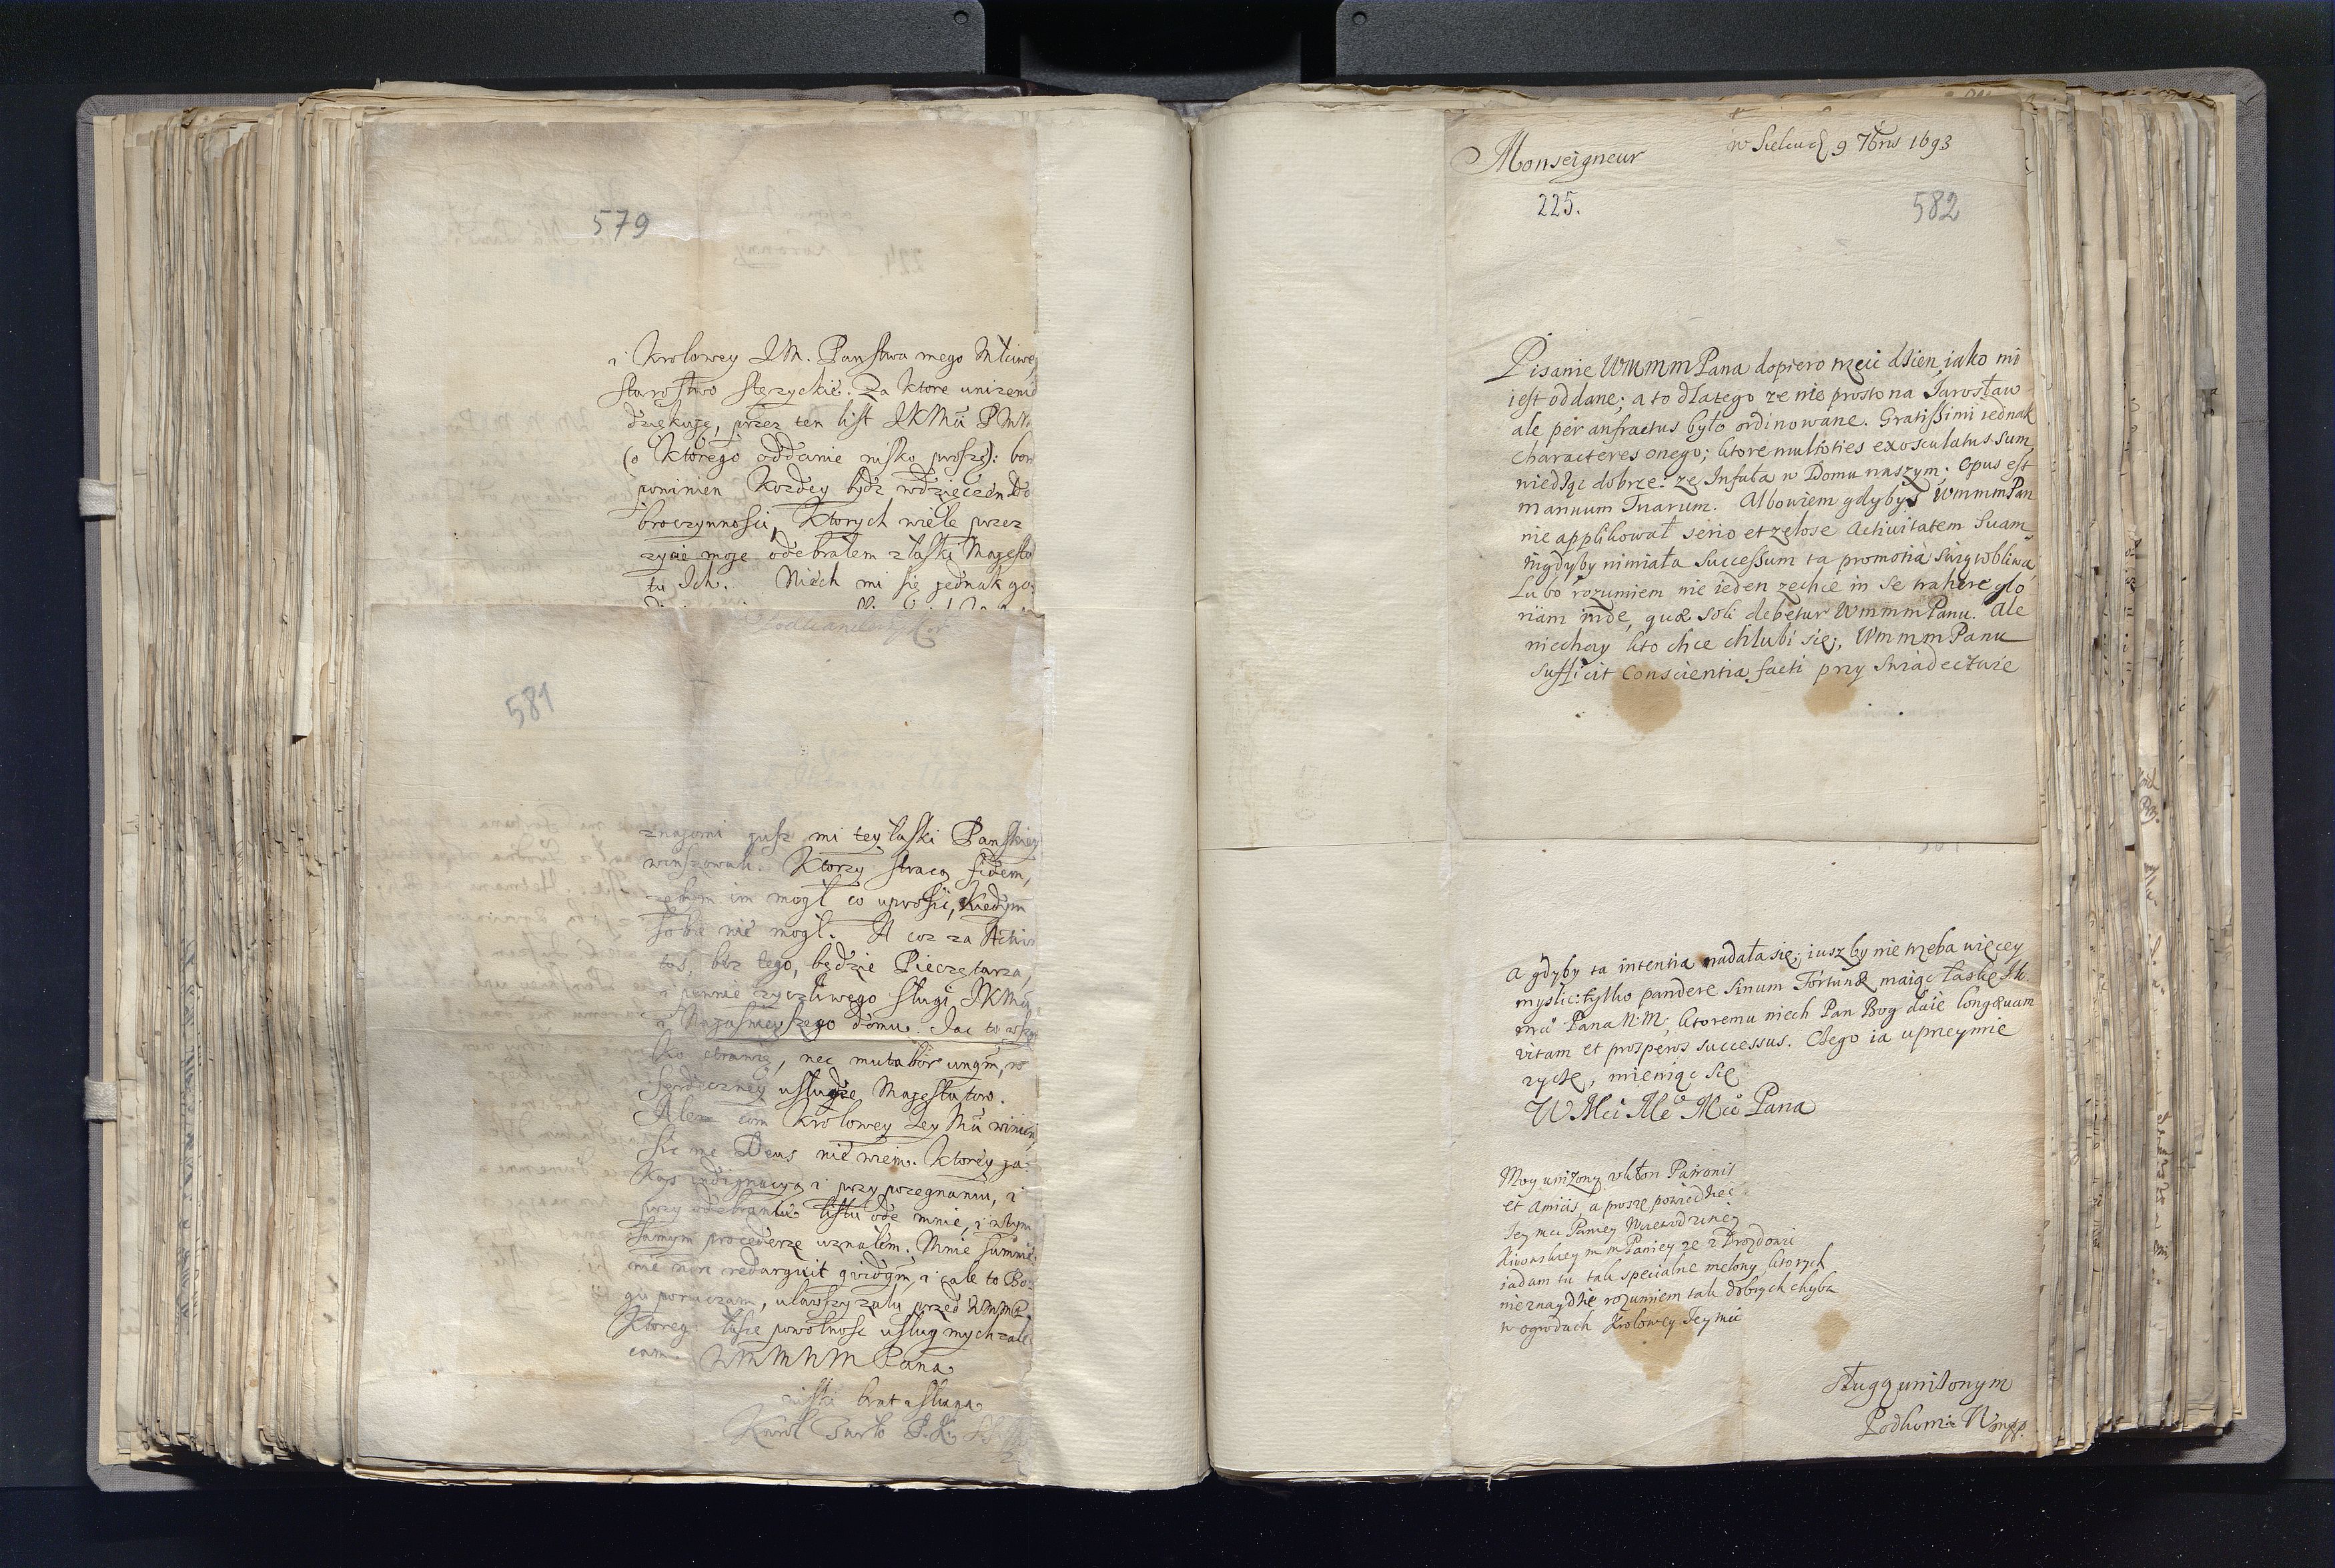 579
i Krolowey JM. Panstwa mego Młciwe
Starostwo Stęzyckie. Za ktore unizenie
dziękuję, przez ten list JKMci PMM
(o ktorego oddanie nisko proszę): bom
powinien kozdey bydz wdzięczen Do
broczynnosci, ktorych wiele przez
zycie moje odebrałem z łaski Majesta
tu Ich. Niech mi się jednak go
581
znajomi jusz mi tey łaski Panskiey
winszowali. Ktorzy stracą fidem,
zebym im mogł co uprosic, kiedym
sobie nie mogł. A coz za
tas, bez tego, będzie Pieczętarza,
i pewnie zyczliwego sługi JKMci,
i Najasnieyszego domu. Jac to wszy
ko strawię, nec mutabor unqm, w
serdeczney usłudze Majestatow.
Alem com Krolowey Jey Mci winien,
sic me Deus nie wiem. Ktorey ja
kąs indignacyą i przy pozegnaniu, i
przy odebraniu listu ode mnie, i w tym
samym procederze uznałem. Mnie sumnie
nie non redarguit qvidqm, i zale to Bo
gu poruczam, ulawszy zalu przed WMMP.
Ktorego łasce powolnosc usług mych zale
cam. WMMMM Pana
niski brat i sługa
Karol Tarło P.K.
Monseigneur
w Sielcach 9 7bris 1693
225.
582
Pisanie WMMM Pana dopiero trzeci dzien, iako mi
iest oddane; a to dlatego ze nie prosto na Jarosław
ale per anfractus było ordinowane. Gratissimi iednak
characteres onego; ktore multoties exosculatus sum,
niedząc dobrze: ze Infuła w Domu naszym; Opus est
manuum Tuarum. Albowiem gdybys WmmmPan
nie applikował serio et zelose Activitatem Suam
nigdyby nimiała Successum ta promotia
Lubo rozumiem nie ieden zechce in se trahere glo
riam inde, quæ soli debetur WmmmPanu. Ale
niechay kto chce chlubi się, WmmmPanu
sufficit Conscientia facti przy Swiadectwie
A gdyby ta intentia nadała się; iusz by nie trzeba więcey
myslic: tylko pandere sinum Fortunæ maiąc łaskę Jk
mci Pana N.M; ktoremu niech Pan Bog daie longævam
vitam et prosperos successus. Czego ia upreymie
zyczę, mieniąc się
WMci Me Mci Pana
Moy unizony ukłon Patronis
et Amicis, a proszę powiedziec
Jey mci Paniey Woiewodziney
Kiiowskiey m m Paniey ze z Drozdowic
iadam tu tak specialne melony ktorych
nieznaydzie rozumiem tak dobrych chyba
w ogrodach Krolowey Jey mci
sługą unizonym